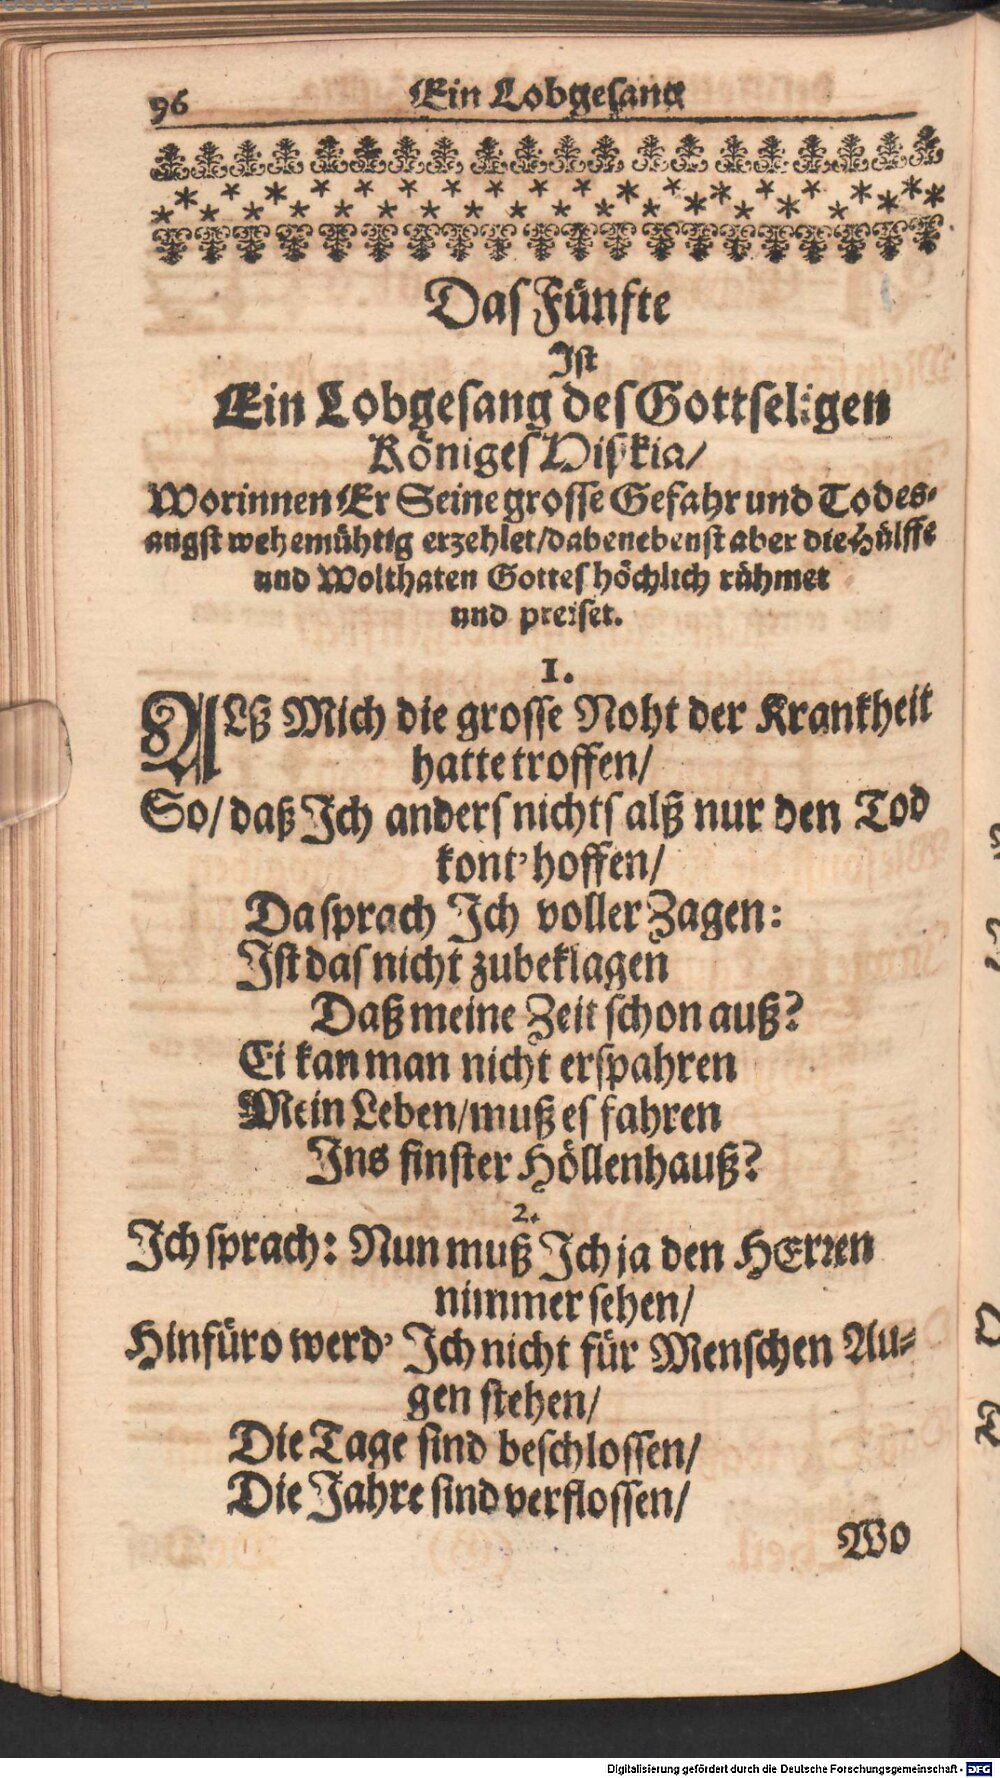 96 Ein Lobgesang
Das Fünfte
Ist
Ein Lobgesang des Gottseligen
Königes Hiskia/
Worinnen Er Seine grosse Gefahr und Todes-
angst wehemühtig erzehlet/ dabenebenst aber die Hülffe
und Wolthaten Gottes höchlich rühmet
und preiset.
1.
ALß Mich die grosse Noht der Krankheit
hatte troffen/
So/ daß Ich anders nichts alß nur den Tod
kont' hoffen/
Da sprach Ich voller Zagen:
Ist das nicht zubeklagen
Daß meine Zeit schon auß?
Ei kan man nicht erspahren
Mein Leben/ muß es fahren
Ins finster Höllenhauß?
2.
Ich sprach: Nun muß Ich ja den HErren
nimmer sehen/
Hinfüro werd' Ich nicht für Menschen Au-
gen stehen/
Die Tage sind beschlossen/
Die Jahre sind verflossen/
Wo
Digitalisierung gefördert durch die Deutsche Forschungsgemeinschaft - DFG